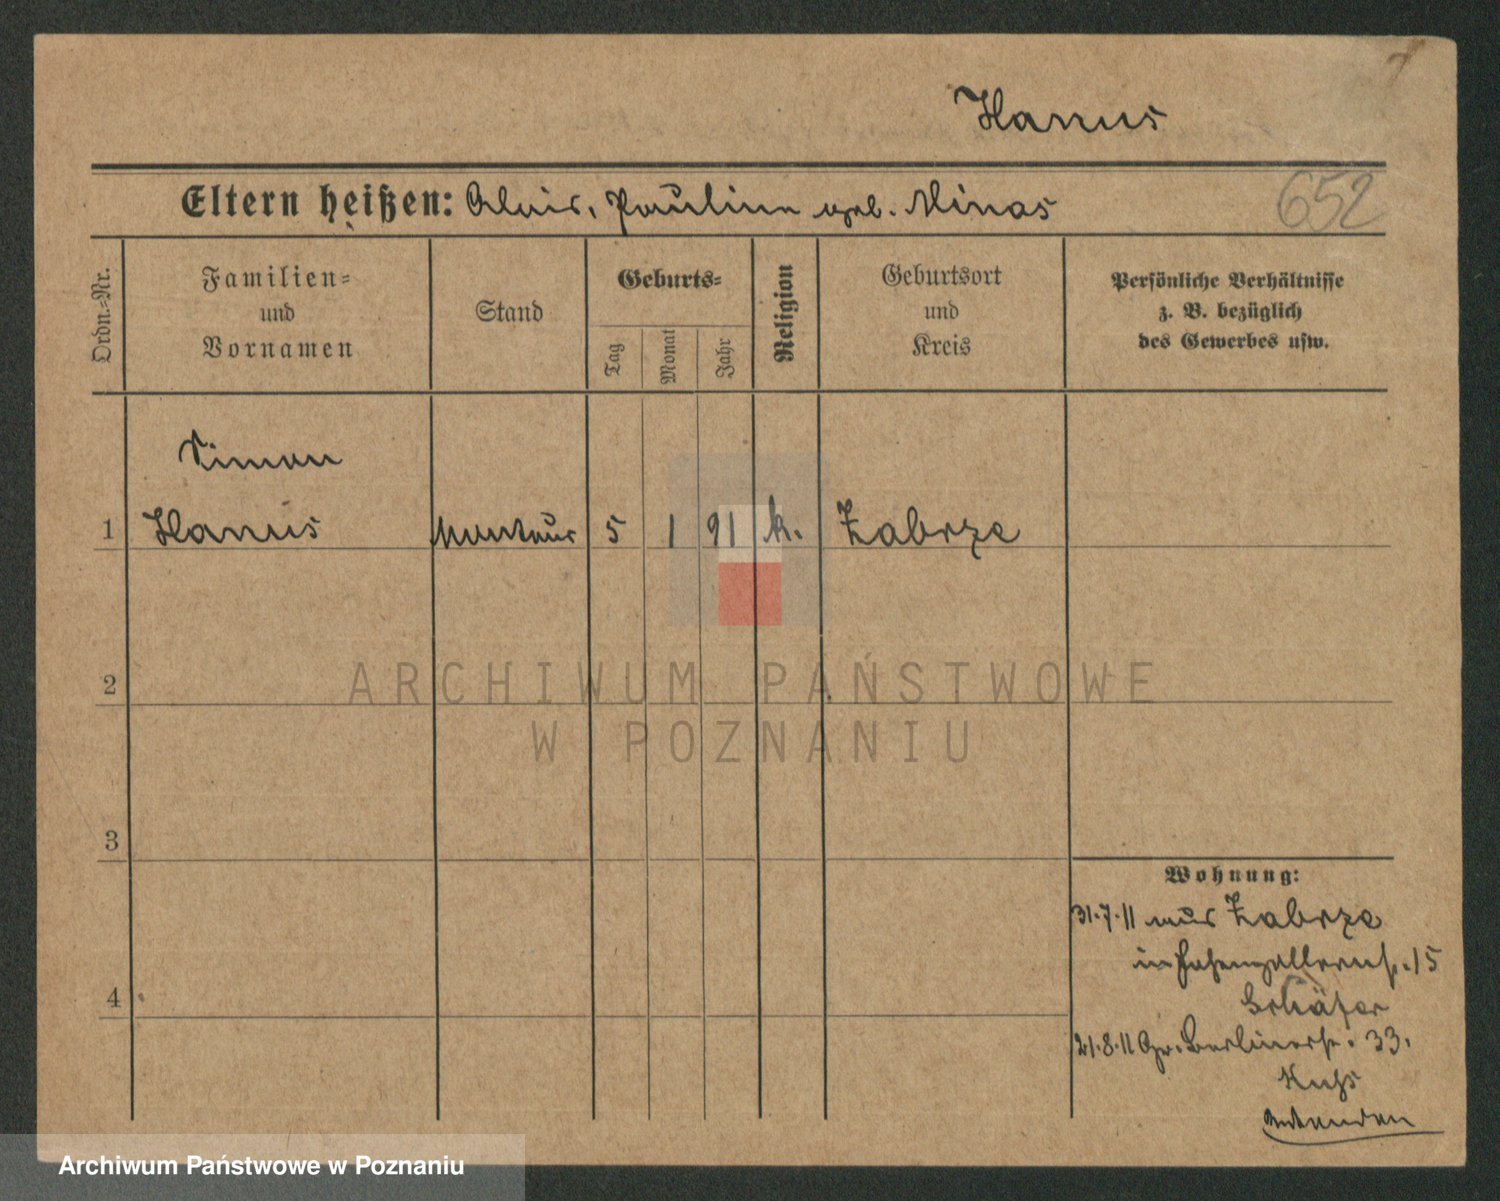 Hanus
Eltern heißen: Alois, Pauline geb. Minas
652
Ordn.-Nr.
Familien-
und
Vornamen
Stand
Geburts-
Tag
Monat
Jahr
Religion
Geburtsort
und
Kreis
Persönliche Verhältnisse
z. B. bezüglich
des Gewerbes usw.
Simon
1 Hanus Monteur 5 1 91 k. Zabrze
2
3
4
Wohnung:
31.7.11 aus Zabrze
in Hohenzollernstr. 15
Schäfer
21.8.11 Gr. Berlinerstr. 33.
ARCHIWUM PAŃSTWOWE
W POZNANIU
Archiwum Państwowe w Poznaniu